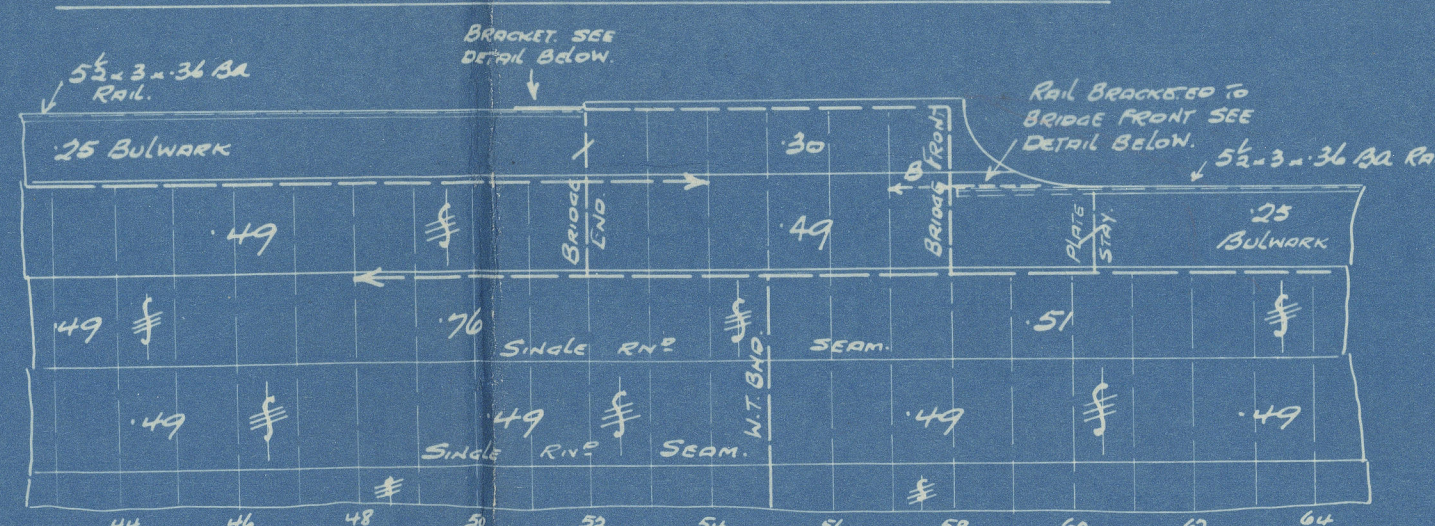 BRACKET. SEE
DETAIL BELOW.
5½ x 3 x .36 BA
RAIL.
RAIL BRACKETED TO
BRIDGE FRONT SEE
DETAIL BELOW.
5½ x 3 x .36 BA RA
.25 BULWARK
.30
BRIDGE FRONT
B
.49
BRIDGE
END
.49
PLATE
STAY.
.25
BULWARK
.49
.76
.51
SINGLE RIVD SEAM.
W.T. BHD.
.49
.49
.49
.49
SINGLE RIVD SEAM.
44 46 48 50 52 54 56 58 60 62 64